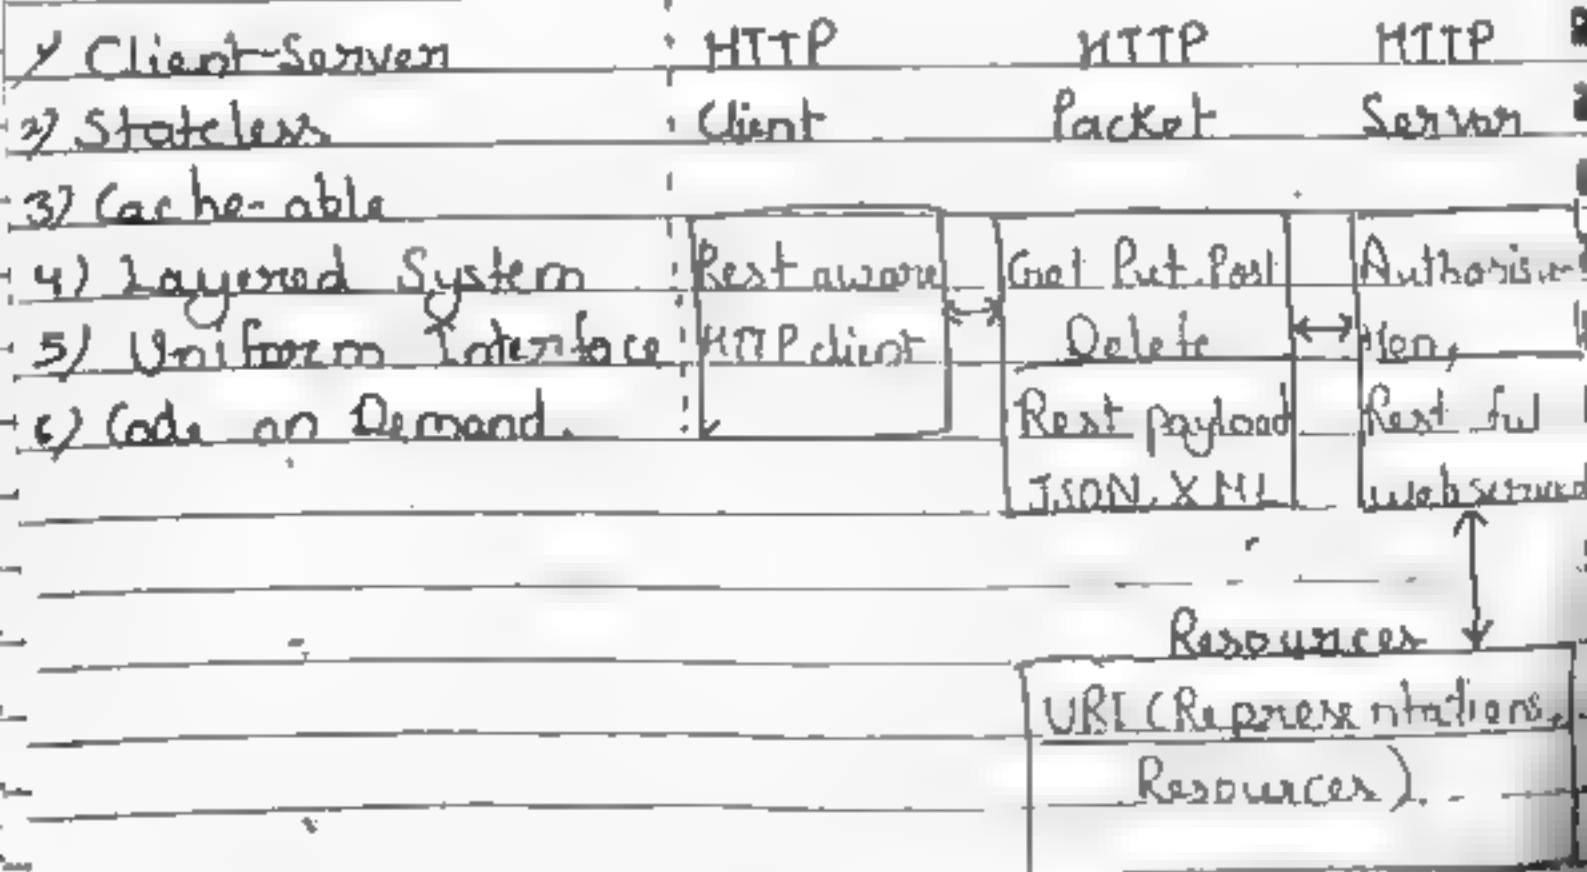 1) Client-Server
2) Stateless
3) Cache-able
4) Layered System
5) Uniform Interface
6) Code on Demand.
HTTP HTTP HTTP
Client Packet Server
Rest aware
HTTP client
Get Put. Post
Delete
Rest payload
JSON, XML
Authorisa-
tion,
Rest ful
Resources
URI (Representations,
Resources).